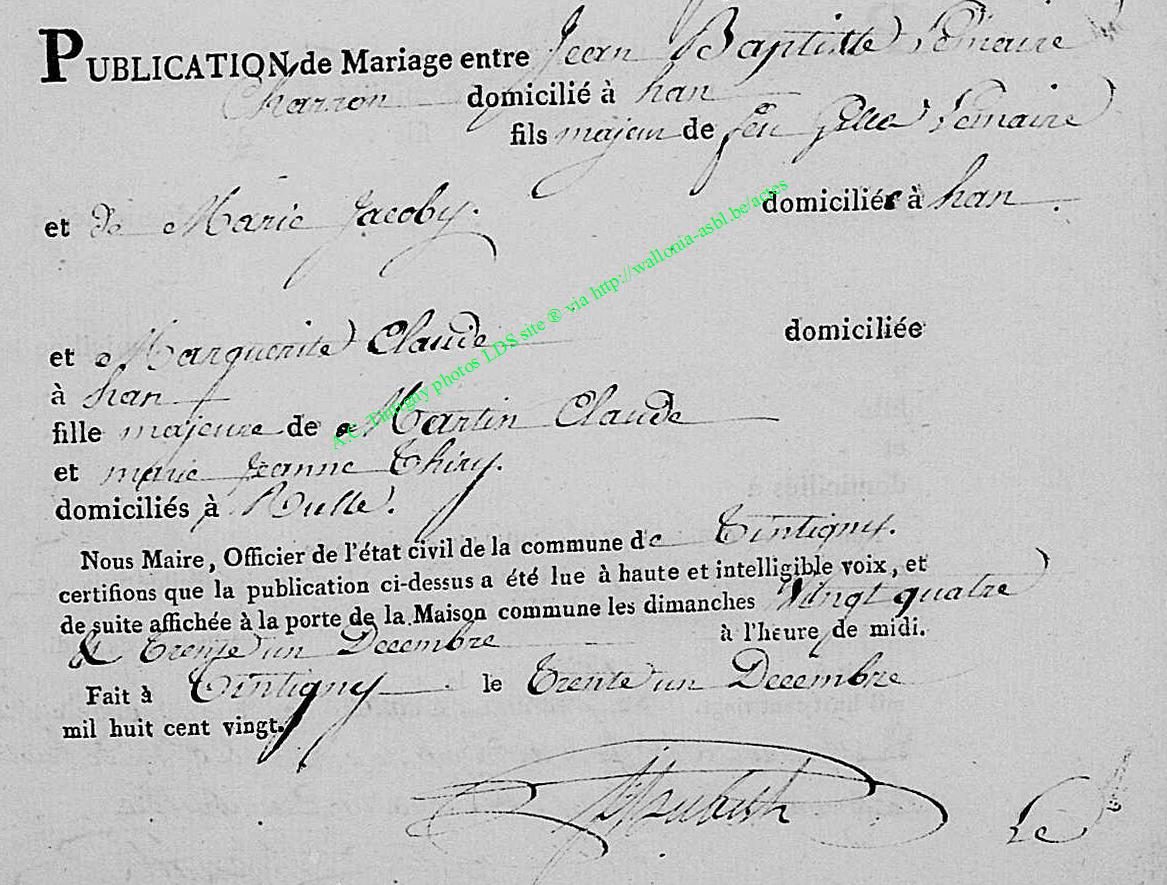 PUBLICATION de Mariage entre Jean Baptiste Lemaire
Charron domicilié à han
fils majeur de feu Gille Lemaire
et de Marie Jacoby. domiciliés à han.
et Marguerite Claude domiciliée
à han
fille majeure de Martin Claude
et marie Jeanne Thiry.
domiciliés à Rulle.
Nous Maire, Officier de l'état civil de la commune de Tintigny.
certifions que la publication ci-dessus a été lue à haute et intelligible voix, et
de suite affichée à la porte de la Maison commune les dimanches Vingt quatre
& Trente un Decembre à l'heure de midi.
Fait à Tintigny le Trente un Decembre
mil huit cent vingt.
Le
A.C. Tintigny photos LDS site ® via http://wallonia-asbl.be/actes